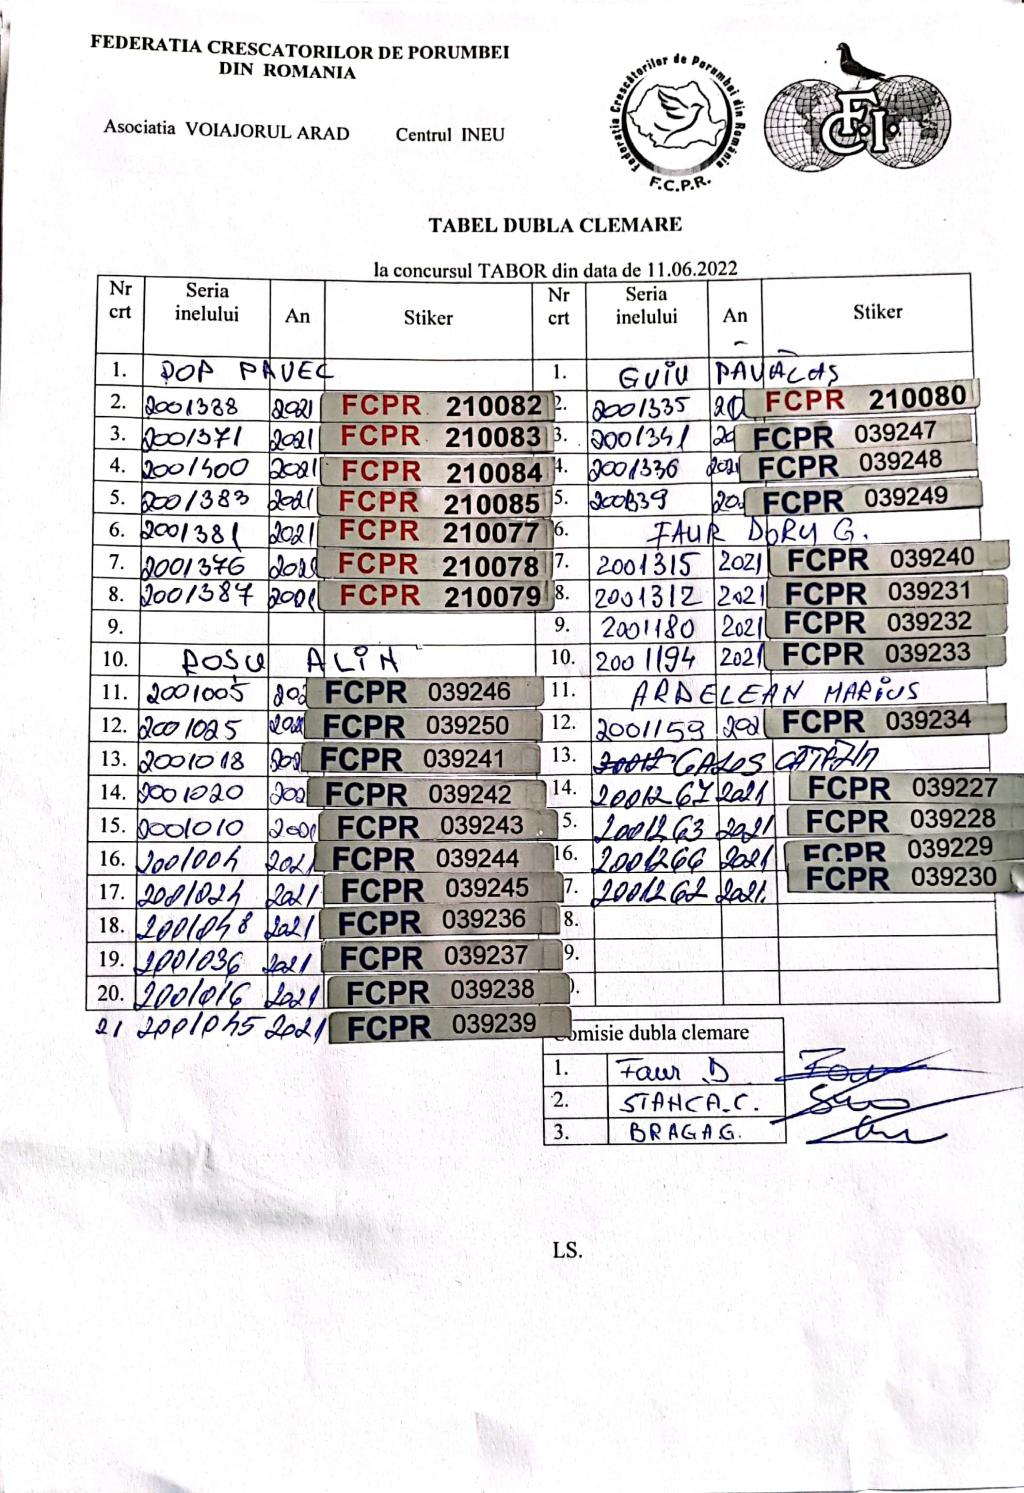 FEDERATIA CRESCATORILOR DE PORUMBEI
DIN ROMANIA
Asociatia VOIAJORUL ARAD Centrul INEU
Federatia Crescătorilor de Porumbei din România
F.C.P.R.
F.C.I.
TABEL DUBLA CLEMARE
la concursul TABOR din data de 11.06.2022
Nr crt Seria inelului An Stiker Nr crt Seria inelului An Stiker
1. POP PAVEL
2. 2001388 2021 FCPR 210082
3. 2001371 2021 FCPR 210083
4. 2001400 2021 FCPR 210084
5. 2001383 2021 FCPR 210085
6. 2001381 2021 FCPR 210077
7. 2001376 2021 FCPR 210078
8. 2001387 2021 FCPR 210079
9.
10. ROȘU ALIN
11. 2001005 202 FCPR 039246
12. 2001025 202 FCPR 039250
13. 2001018 202 FCPR 039241
14. 2001020 202 FCPR 039242
15. 2001010 2021 FCPR 039243
16. 2001004 2021 FCPR 039244
17. 2001024 2021 FCPR 039245
18. 2001048 2021 FCPR 039236
19. 2001036 2021 FCPR 039237
20. 2001016 2021 FCPR 039238
21 2001045 2021 FCPR 039239
1. GUIU
2. 2001335 20 FCPR 210080
3. 2001341 20 FCPR 039247
4. 2001336 2021 FCPR 039248
5. 2001339 202 FCPR 039249
6. FAUR DORU G.
7. 2001315 2021 FCPR 039240
8. 2001312 2021 FCPR 039231
9. 2001180 2021 FCPR 039232
10. 2001194 2021 FCPR 039233
11. ARDELEAN MARIUS
12. 2001159 202 FCPR 039234
13.
14. 2001267 2021 FCPR 039227
5. 2001263 2021 FCPR 039228
16. 2001266 2021 FCPR 039229
7. 2001262 2021. FCPR 039230
8.
9.
).
omisie dubla clemare
1. Faur D
2. STANCA.C.
3. BRAGA G.
LS.